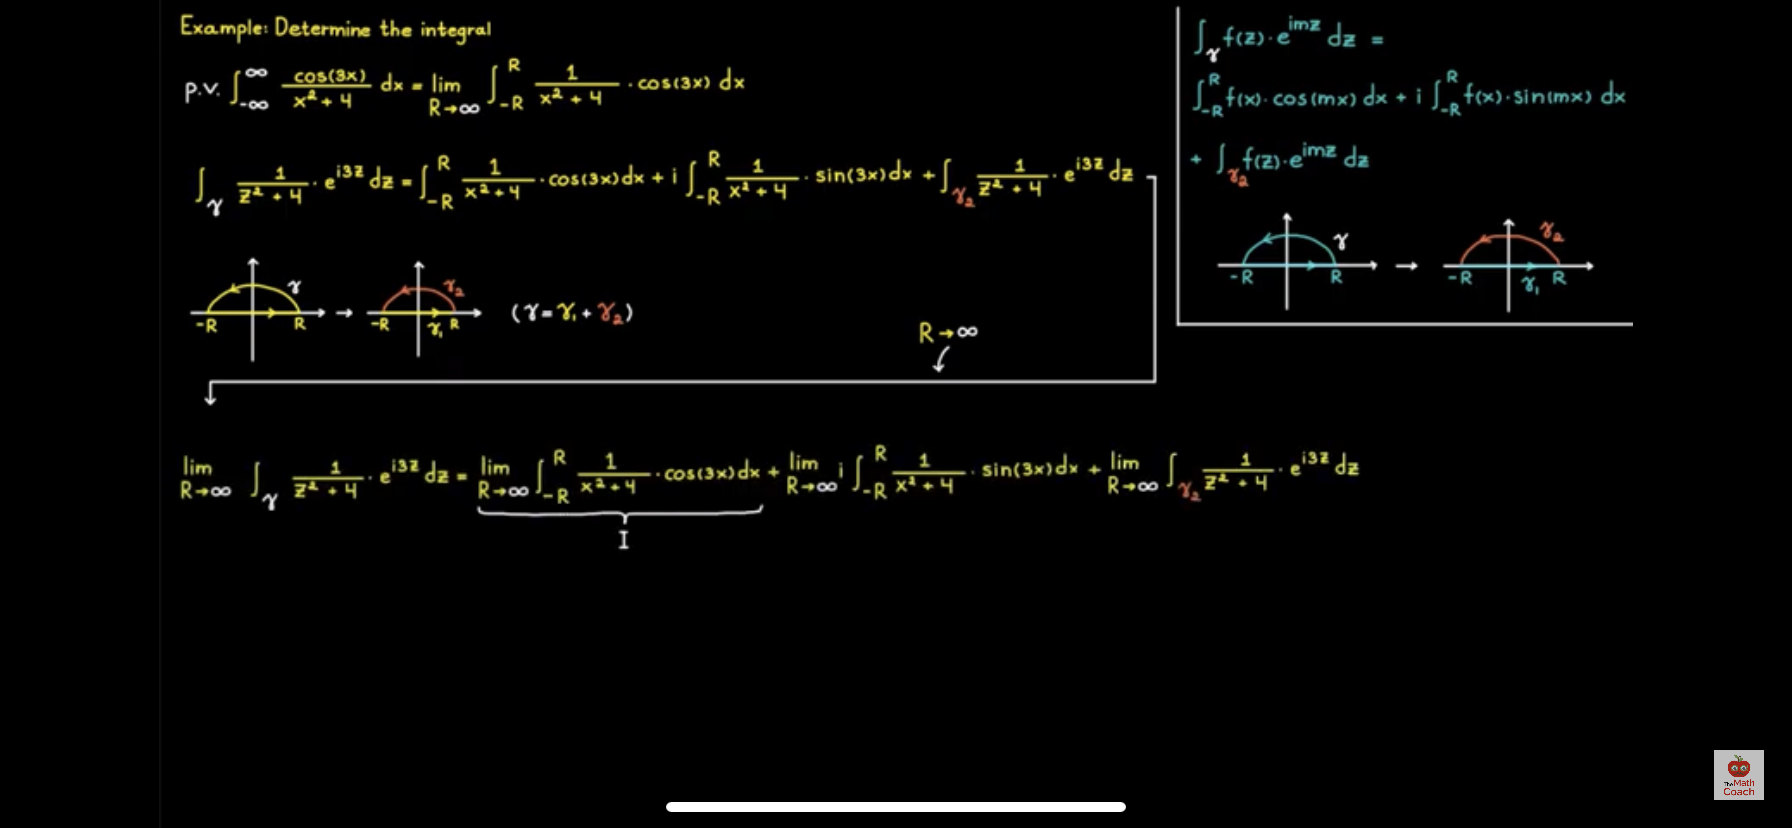 Example: Determine the integral
p.v. ∫_{-∞}^{∞} cos(3x)/(x² + 4) dx = lim_{R→∞} ∫_{-R}^{R} 1/(x² + 4) · cos(3x) dx
∫_γ 1/(z² + 4) · e^{i3z} dz = ∫_{-R}^{R} 1/(x² + 4) · cos(3x) dx + i ∫_{-R}^{R} 1/(x² + 4) · sin(3x) dx + ∫_{γ₂} 1/(z² + 4) · e^{i3z} dz
γ
-R R
→
γ₂
-R γ₁ R
(γ = γ₁ + γ₂)
R→∞
lim_{R→∞} ∫_γ 1/(z² + 4) · e^{i3z} dz = lim_{R→∞} ∫_{-R}^{R} 1/(x² + 4) · cos(3x) dx + lim_{R→∞} i ∫_{-R}^{R} 1/(x² + 4) · sin(3x) dx + lim_{R→∞} ∫_{γ₂} 1/(z² + 4) · e^{i3z} dz
I
∫_γ f(z) · e^{imz} dz =
∫_{-R}^{R} f(x) · cos(mx) dx + i ∫_{-R}^{R} f(x) · sin(mx) dx
+ ∫_{γ₂} f(z) · e^{imz} dz
γ
-R R
→
γ₂
-R γ₁ R
The Math
Coach